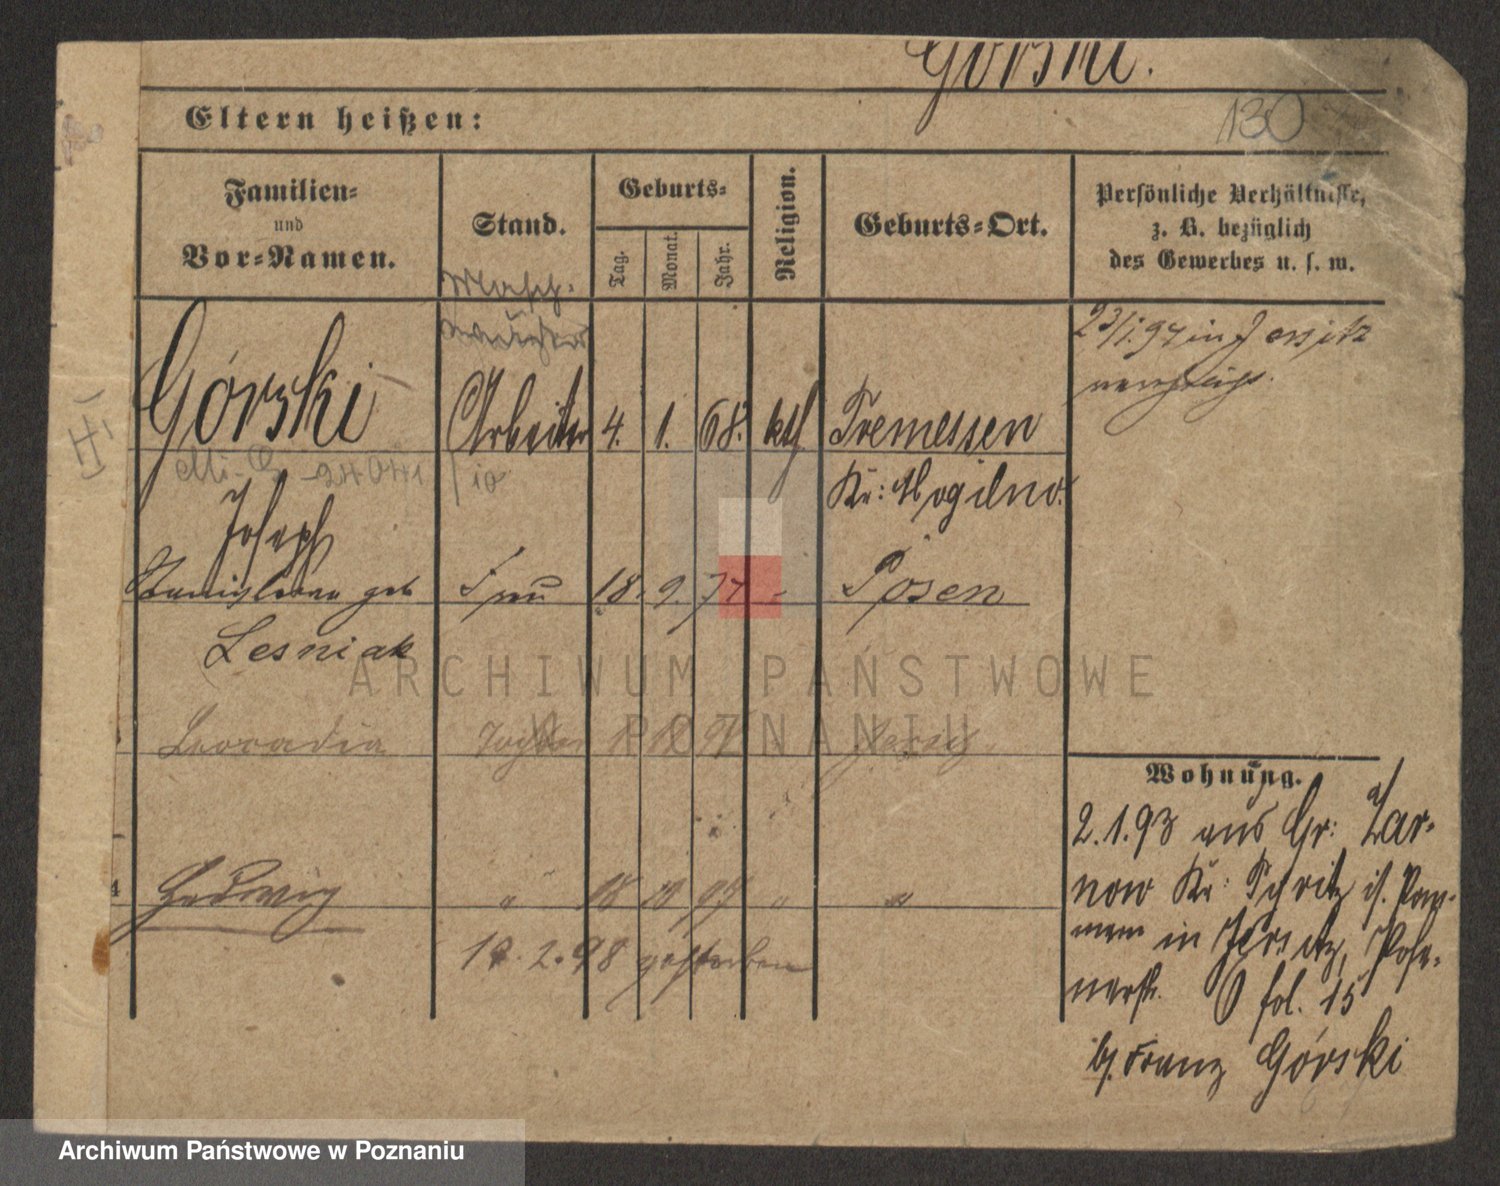 Górski.
130
Eltern heißen:
Familien-
und
Vor-Namen.
Stand.
Geburts-
Tag.
Monat.
Jahr.
Religion.
Geburts-Ort.
Persönliche Verhältnisse,
z. B. bezüglich
des Gewerbes u. s. w.
Górski
Arbeiter 4. 1. 68. kth Tremessen
Kr: Mogilno.
Joseph
23/1.97 in Jersitz
Stanislawa geb Frau 18. 9. 77 - Posen
Lesniak
Leocadia Tochter
Hedwig " 18 10 97 " "
2.98 gestorben
Wohnung.
2.1.93 aus Gr: Zar-
now Kr: Pyritz i/. Pom-
mern in Jersitz, Pose-
nerstr. fol. 15
b/. Franz Górski
ARCHIWUM PAŃSTWOWE
W POZNANIU
Archiwum Państwowe w Poznaniu